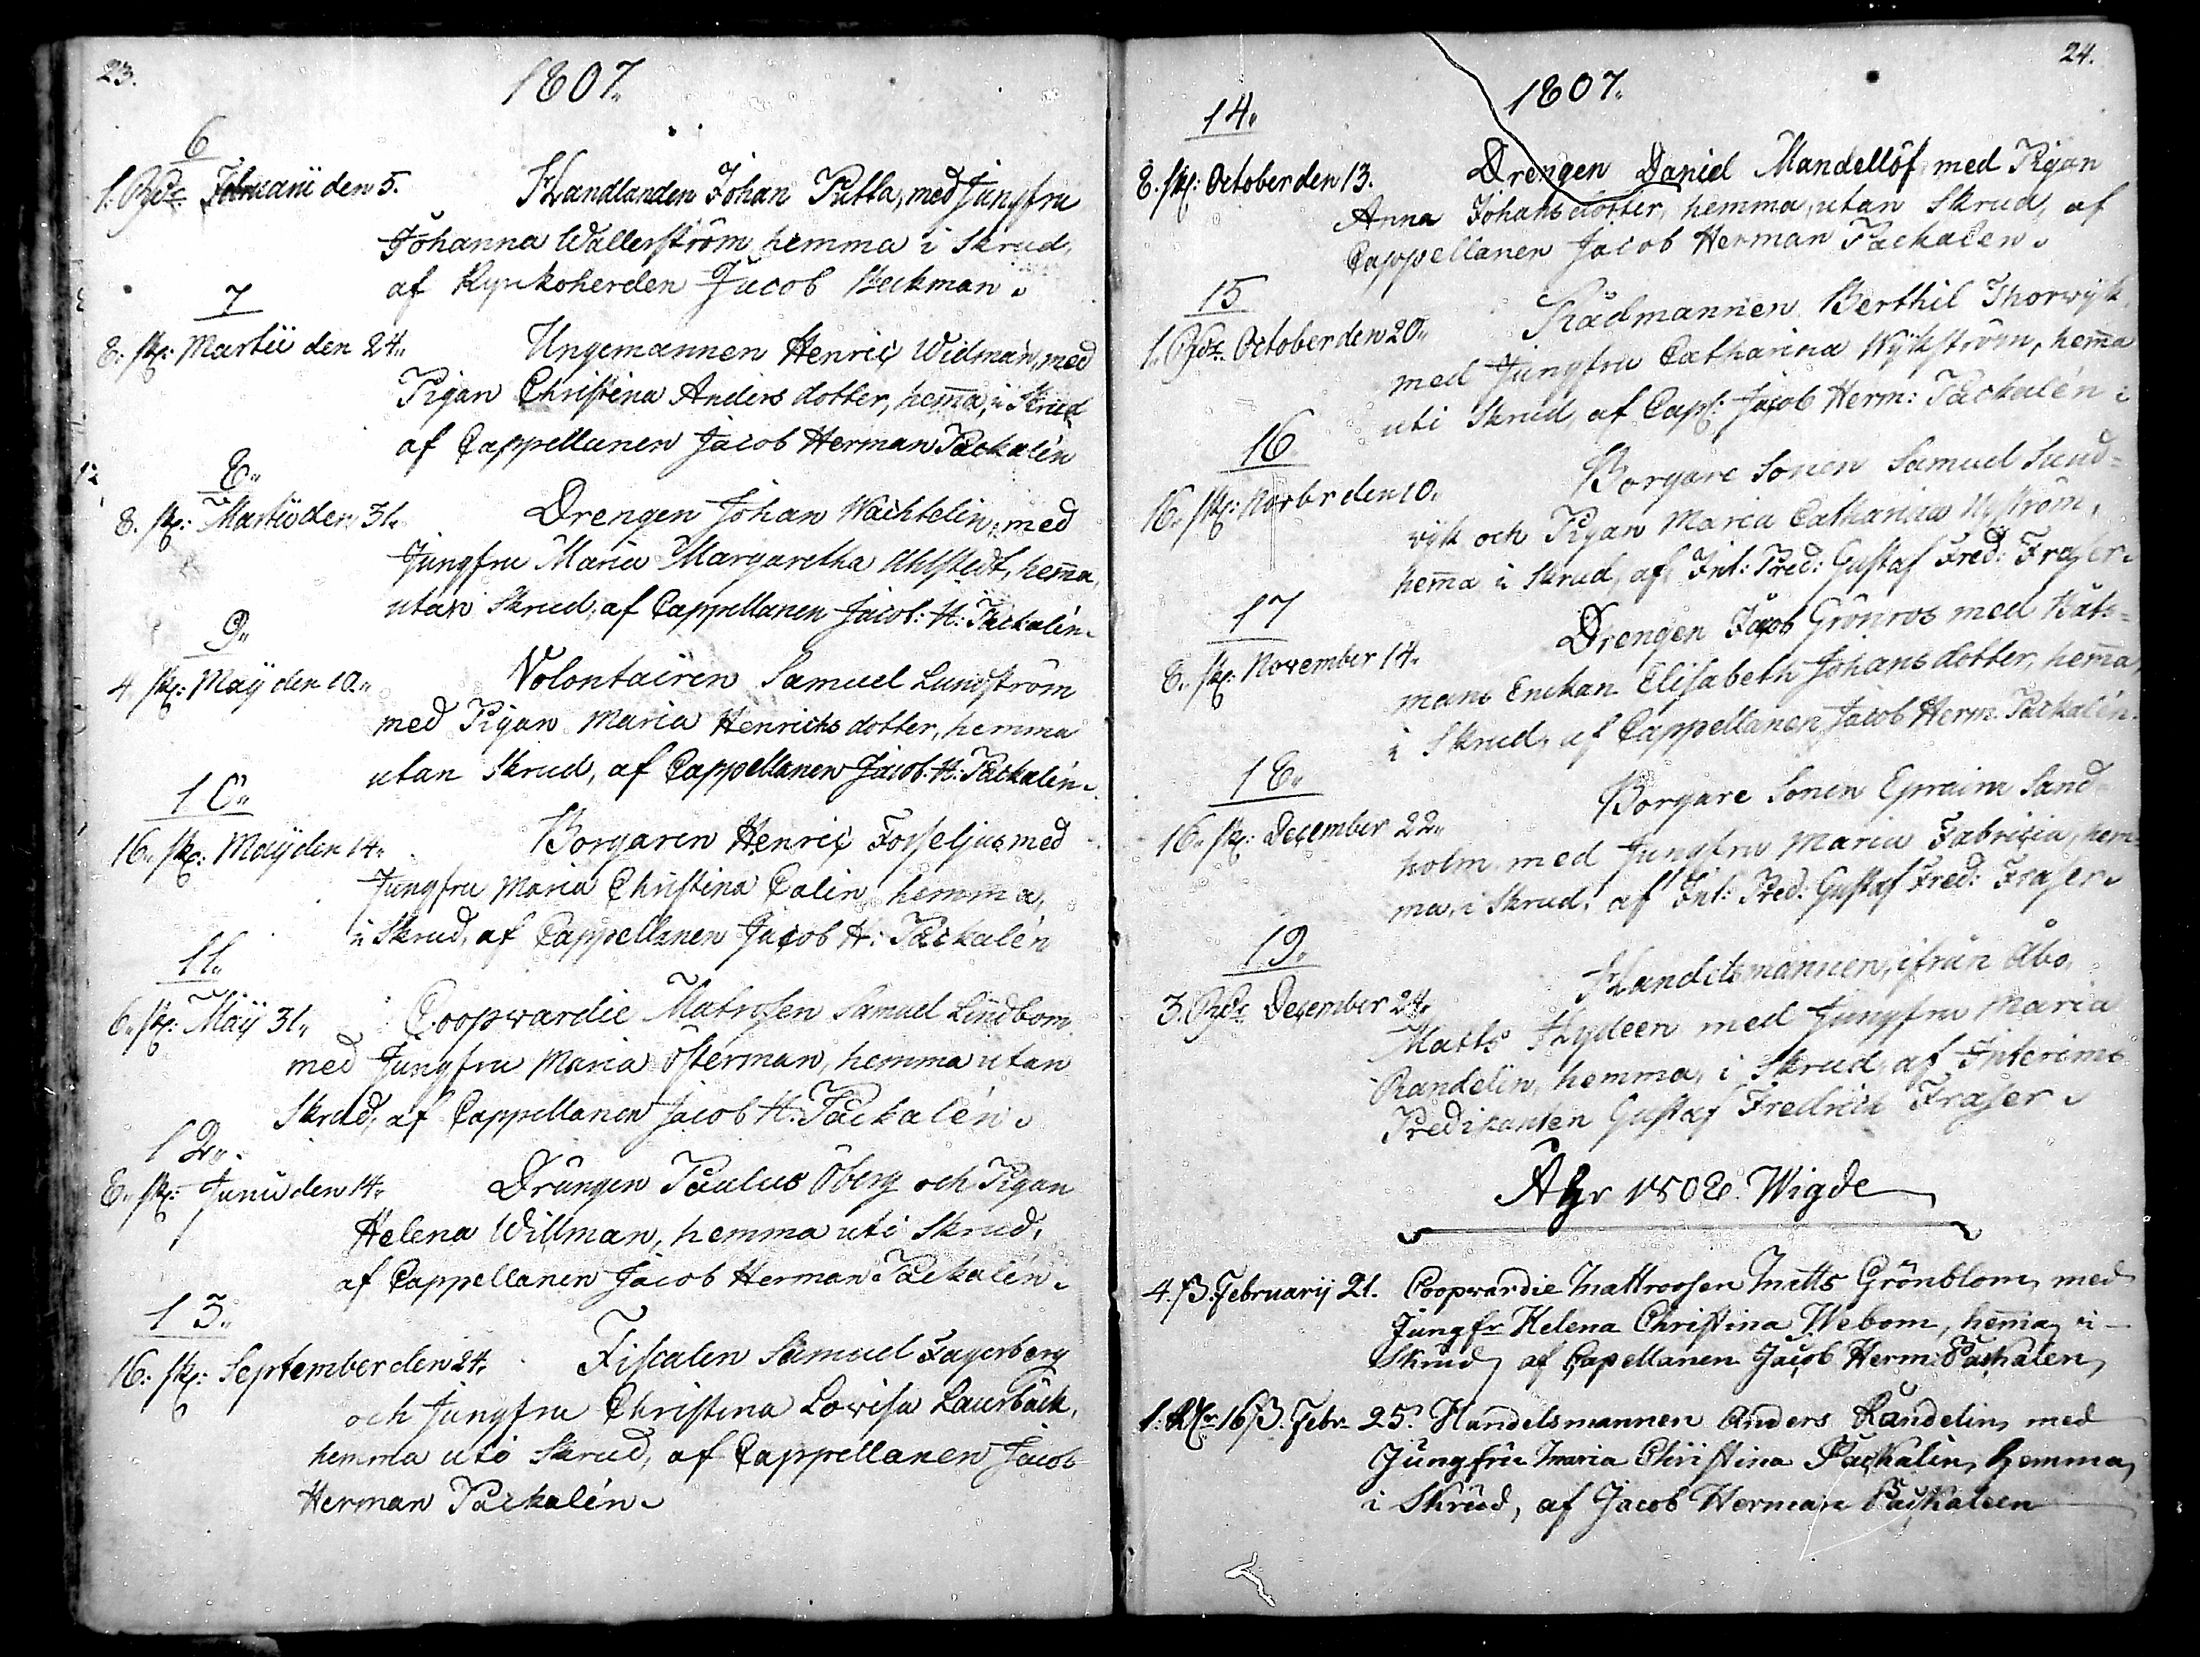 23.
1807.
6
1. Rdr Februarii den 5. Handlanden Johan Putta, med Jungfru
Johanna Wallerström hemma i Skrud,
af Kyrkoherden Jacob Beckman.
7
8. sk: Martii den 24. Ungemannen Henric Widman, med
Pigan Christina Anders dotter, hem̄a, i Skrud
af Cappellanen Jacob Herman Packalén
8.
8. sk: Martii den 31. Drengen Johan Wachtelin, med
Jungfru Maria Margaretha Ahlstedt, hem̄a,
utan Skrud, af Cappellanen Jacob: H: Packalén.
9.
4 sk: Maÿ den 10. Volontairen Samuel Lundström
med Pigan Maria Henrichs dotter, hemma
utan Skrud, af Cappellanen Jacob. H. Packalén.
10.
16. sk: Maÿ den 14. Borgaren Henric Fosseljus med
Jungfru Maria Christina Calin hemma,
i Skrud, af Cappellanen Jacob H: Packalén
11.
6. sk: Maÿ 31. Coopvardie Matrosen Samuel Lindbom
med Jungfru Maria Österman, hemma utan
Skrud, af Cappellanen Jacob H. Packalén.
12.
8. sk: Junii den 14. Drängen Paulus Öberg och Pigan
Helena Willman, hemma uti Skrud,
af Cappellanen Jacob Herman Packalén.
13.
16: sk: September den 24. Fiscalen Samuel Fagerberg
och Jungfru Christina Lovisa Laurbäck,
hemma uti Skrud, af Cappellanen Jacob
Herman Packalén.
24.
1807.
14.
8. sk: October den 13. Drengen Daniel Mandellöf med Pigan
Anna Johansdotter, hemma, utan Skrud, af
Cappellanen Jacob Herman Packalén.
15
1. Rdr. October den 20. Rådmannen Berthil Thorwÿk
med Jungfru Catharina Wÿkström, hem̄a
uti Skrud, af Cap: Jacob Herm: Packalén.
16
16. sk: Novbr den 10. Borgare Sonen Samuel Sund-
vik och Pigan Maria Catharina Nÿström,
hem̄a i Skrud, af Int: Pred: Gustaf Fred: Fraser.
17
8. sk: November 14. Drengen Jacob Grönros med Båts-
mans Enckan Elisabeth Johans dotter, hem̄a,
i Skrud, af Cappellanen Jacob Herm. Packalén.
18.
16. sk: December 22. Borgare Sonen Epraim Sand-
holm, med Jungfru Maria Fabricia, hem-
ma, i Skrud, af Int: Pred. Gustaf Fred: Fraser.
19.
3. Rdr December 24. Handelsmannen, ifrån Åbo,
Matts Hydeen med Jungfru Maria
Randelin, hemma, i Skrud, af Interims
Predikanten Gustaf Fredrich Fraser.
Åhr 1808. Wigde
4. ß. Februarij 21. Coopvardie Mattroosen Matts Grönblom, med
Jungfr Helena Christina Webom, hem̄a, i
Skrud, af Capellanen Jacob Herm: Packalen,
1. Rdr 16 ß. Febr. 25. Handelsmannen Anders Randelin, med
Jungfru Maria Christina Packalin, hemma,
i Skrud, af Jacob Herman Packaleen